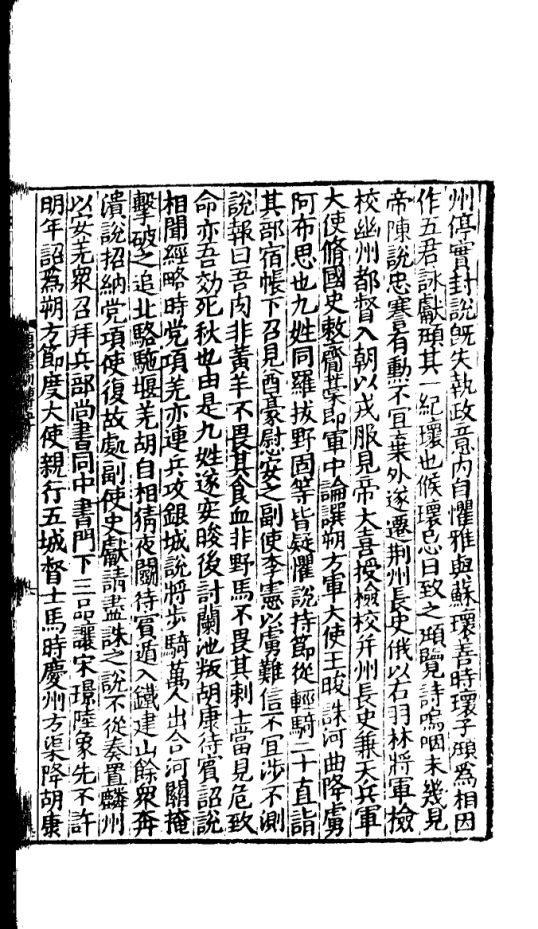 州停實封說旣失執政意内自懼雅與蘇瓌善時瓌子頲爲相因
作五君詠獻頲其一紀瓌也候瓌忌日致之頲覽詩嗚咽未幾見
帝陳說忠謇有勳不宜棄外遂遷荆州長史俄以右羽林將軍檢
校幽州都督入朝以戎服見帝大喜授檢校并州長史兼天兵軍
大使脩國史敕齎藁即軍中論譔朔方軍大使王晙誅河曲降虜
阿布思也九姓同羅拔野固等皆疑懼說持節從輕騎二十直詣
其部宿帳下召見酋豪慰安之副使李憲以虜難信不宜涉不測
說報曰吾肉非黃羊不畏其食血非野馬不畏其刺士當見危致
命亦吾効死秋也由是九姓遂安晙後討蘭池叛胡康待賓詔說
相聞經略時党項羌亦連兵攻銀城說將步騎萬人出合河關掩
擊破之追北駱駞堰羌胡自相猜夜鬭待賓遁入鐵建山餘衆奔
潰說招納党項使復故處副使史獻請盡誅之說不從奏置麟州
以安羌衆召拜兵部尚書同中書門下三品讓宋璟陸象先不許
明年詔爲朔方節度大使親行五城督士馬時慶州方渠降胡康